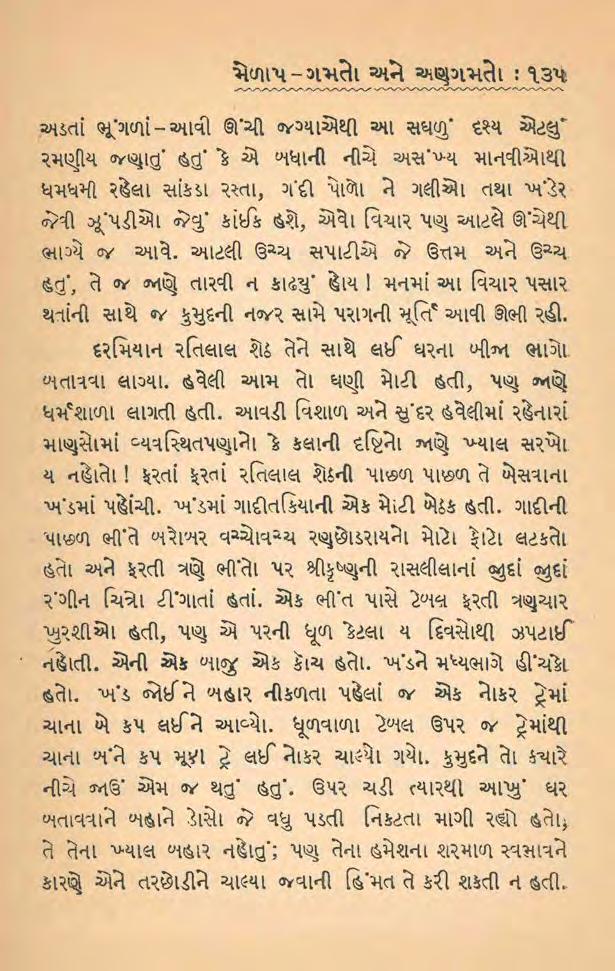 મેળાપ – ગમતો અને અણગમતો : ૧૩૫
અડતાં ભૂંગળાં – આવી ઊંચી જગ્યાએથી આ સઘળું દૃશ્ય એટલું
રમણીય જણાતું હતું કે એ બધાની નીચે અસંખ્ય માનવીઓથી
ધમધમી રહેલા સાંકડા રસ્તા, ગંદી પોળો ને ગલીઓ તથા ખંડેર
જેવી ઝૂંપડીઓ જેવું કાંઈક હશે, એવો વિચાર પણ આટલે ઊંચેથી
ભાગ્યે જ આવે. આટલી ઉચ્ચ સપાટીએ જે ઉત્તમ અને ઉચ્ચ
હતું, તે જ જાણે તારવી ન કાઢ્યું હોય ! મનમાં આ વિચાર પસાર
થતાંની સાથે જ કુમુદની નજર સામે પરાગની મૂર્તિ આવી ઊભી રહી.
દરમિયાન રતિલાલ શેઠ તેને સાથે લઈ ઘરના બીજા ભાગો
બતાવવા લાગ્યા. હવેલી આમ તો ઘણી મોટી હતી, પણ જાણે
ધર્મશાળા લાગતી હતી. આવડી વિશાળ અને સુંદર હવેલીમાં રહેનારાં
માણસોમાં વ્યવસ્થિતપણાનો કે કલાની દૃષ્ટિનો જાણે ખ્યાલ સરખો
ય નહોતો ! ફરતાં ફરતાં રતિલાલ શેઠની પાછળ પાછળ તે બેસવાના
ખંડમાં પહોંચી. ખંડમાં ગાદીતકિયાની એક મોટી બેઠક હતી. ગાદીની
પાછળ ભીંતે બરોબર વચ્ચોવચ્ચ રણછોડરાયનો મોટો ફોટો લટકતો
હતો અને ફરતી ત્રણે ભીંતો પર શ્રીકૃષ્ણની રાસલીલાનાં જુદાં જુદાં
રંગીન ચિત્રો ટીંગાતાં હતાં. એક ભીંત પાસે ટેબલ ફરતી ત્રણચાર
ખુરશીઓ હતી, પણ એ પરની ધૂળ કેટલા ય દિવસોથી ઝપટાઈ
નહોતી. એની એક બાજુ એક કોચ હતો. ખંડને મધ્યભાગે હીંચકો
હતો. ખંડ જોઈને બહાર નીકળતા પહેલાં જ એક નોકર ટ્રેમાં
ચાના બે કપ લઈને આવ્યો. ધૂળવાળા ટેબલ ઉપર જ ટ્રેમાંથી
ચાના બંને કપ મૂકી ટ્રે લઈ નોકર ચાલ્યો ગયો. કુમુદને તો ક્યારે
નીચે જાઉં એમ જ થતું હતું. ઉપર ચડી ત્યારથી આખું ઘર
બતાવવાને બહાને ડોસો જે વધુ પડતી નિકટતા માગી રહ્યો હતો,
તે તેના ખ્યાલ બહાર નહોતું; પણ તેના હમેશના શરમાળ સ્વભાવને
કારણે એને તરછોડીને ચાલ્યા જવાની હિંમત તે કરી શકતી ન હતી.